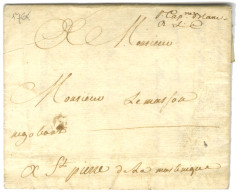 1766
pr Capne
A Monsieur
Monsieur Lemasson
negotiant
A St pierre de La martinique